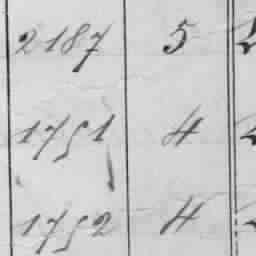 2187 5
1751 4
1752 4